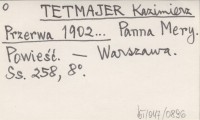 o TETMAJER Kazimierz
Przerwa 1902... Panna Mery.
Powieść. — Warszawa.
Ss. 258, 8°.